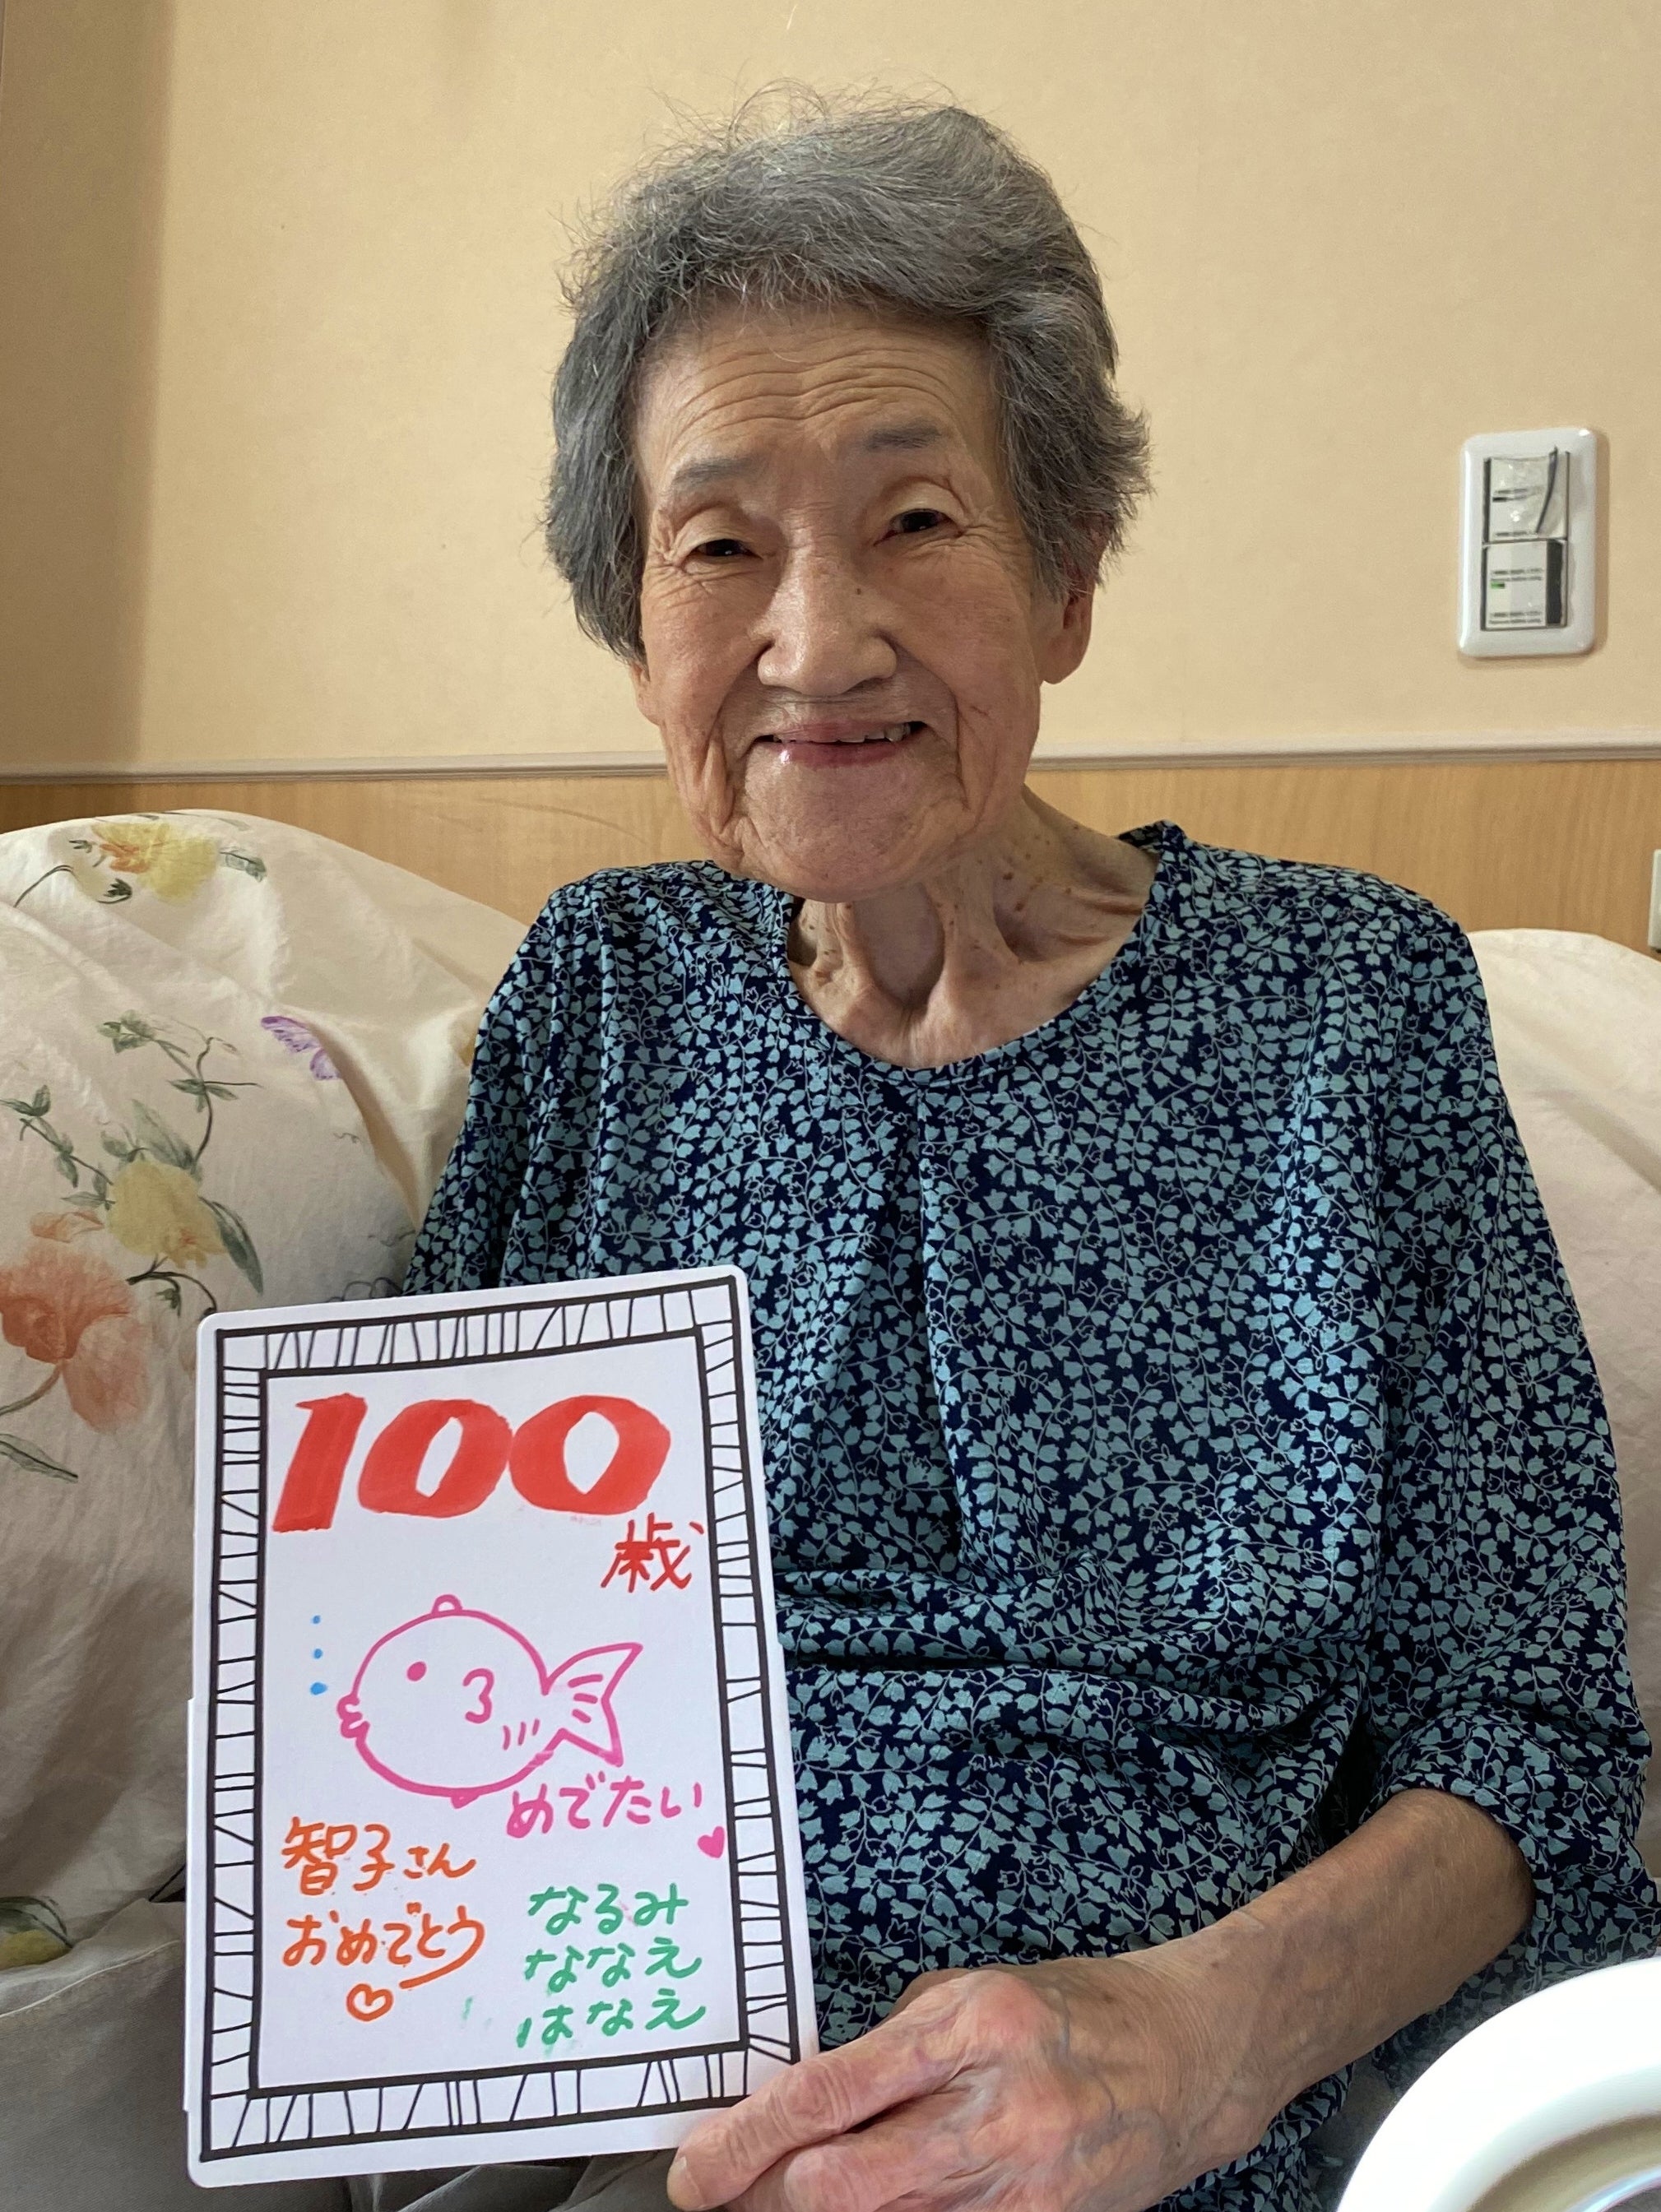 100
歳
めでたい
智子さん
おめでとう
なるみ
ななえ
はなえ